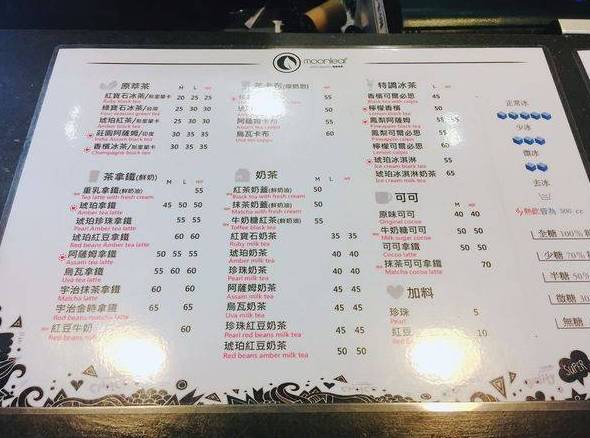 moonleaf
原萃茶 M L HOT
紅寶石冰茶/斯里蘭卡 20 25 25
Ruby black tea
綠寶石冰茶/台灣 25 30 30
Four seasons green tea
琥珀紅茶/斯里蘭卡 25 30 30
Amber black tea
莊園阿薩姆/印度 30 35 35
India Assam black tea
香檳冰茶/斯里蘭卡 30 35 35
Champagne black tea
茶拿鐵(鮮奶) M L HOT
重乳拿鐵(鮮奶油) 55
Tea latte with fresh cream
琥珀拿鐵 45 50 50
Amber tea latte
琥珀珍珠拿鐵 55 55
Pearl Amber tea latte
琥珀紅豆拿鐵 60 60
Red beans Amber tea latte
阿薩姆拿鐵 50 55 55
Assam tea latte
烏瓦拿鐵 50 55 55
Uva tea latte
宇治抹茶拿鐵 60 60
Matcha latte
宇治金時拿鐵 65
Red beans matcha latte
紅豆牛奶 60
Red beans
(厚奶泡)
阿薩姆卡布 55
烏瓦卡布 55
奶茶 M L HOT
紅茶奶蓋(鮮奶油) 50
Black tea with fresh cream
抹茶奶蓋(鮮奶油) 50
Matcha with fresh cream
牛奶糖紅茶(鮮奶油) 50
Toffee black tea
紅寶石奶茶 35 35
Ruby milk tea
琥珀奶茶 40 40
Amber milk tea
珍珠奶茶 40 40
Pearl milk tea
阿薩姆奶茶 45 45
Assam milk tea
烏瓦奶茶 45 45
Uva milk tea
珍珠紅豆奶茶 45 45
Pearl red beans milk tea
琥珀紅豆奶茶 50 50
Red beans amber milk tea
特調冰茶 M L
香檳可爾必思 45
Black tea with calpis
檸檬香檳 50
Lemon black tea
鳳梨阿薩姆 55
Pineapple black tea
鳳梨可爾必思 55
Pineapple calpis
檸檬可爾必思 60
Lemon calpis
琥珀冰淇淋 55
Ice cream black tea
琥珀冰淇淋奶茶 65
Ice cream milk tea
可可 M HOT
原味可可 40 40
Original cocoa
牛奶糖可可 50 50
Milk sugar cocoa
可可拿鐵 50 50
Cocoa latte
抹茶可可拿鐵 70
Matcha cocoa latte
加料
珍珠 5
Pearl
紅豆 10
Red beans
正常冰
少冰
微冰
去冰
熱飲皆為 500 cc
全糖 100%
少糖 70%
半糖 50%
微糖 30
無糖
SUPER